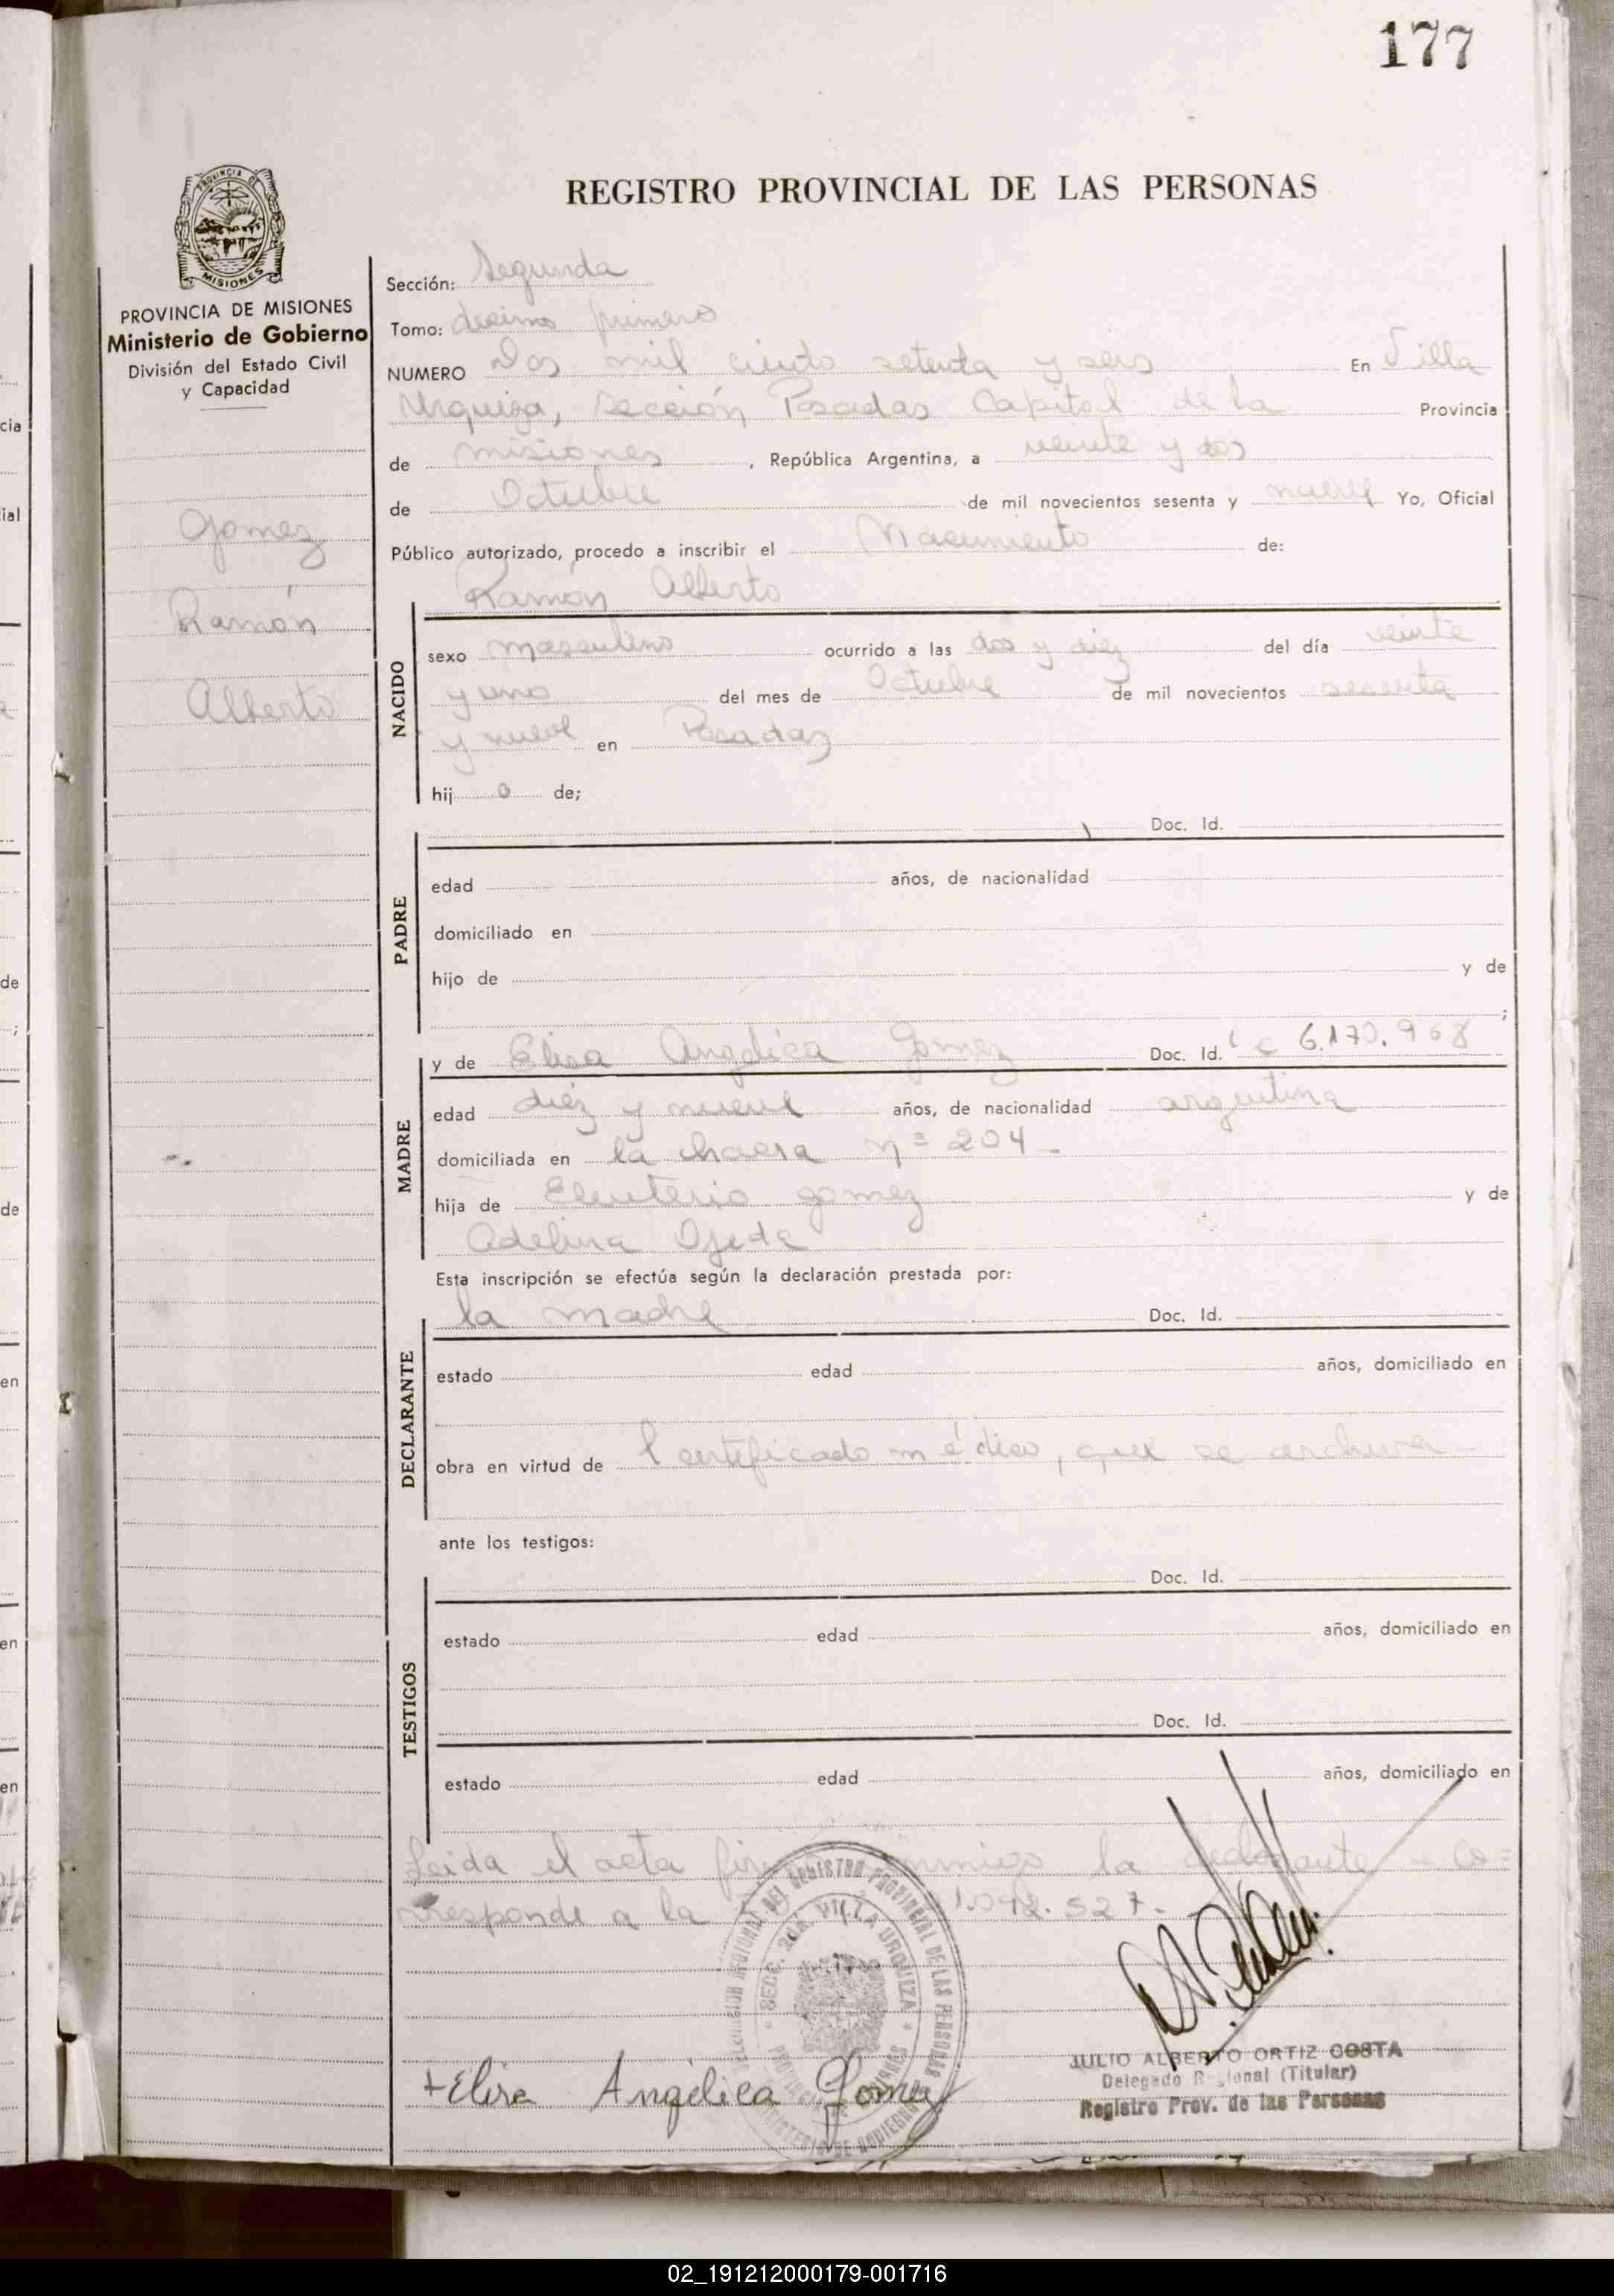 177
REGISTRO PROVINCIAL DE LAS PERSONAS
PROVINCIA DE MISIONES
Ministerio de Gobierno
División del Estado Civil
y Capacidad
Gomez
Ramón
Alberto
Sección: Segunda
Tomo: decimo primero
NUMERO Dos mil ciento setenta y seis En Villa
Urquiza, Sección Posadas Capital de la Provincia
de misiones, República Argentina, a veinte y dos
de Octubre de mil novecientos sesenta y nueve Yo, Oficial
Público autorizado, procedo a inscribir el Nacimiento de:
Ramón Alberto
NACIDO
sexo masculino ocurrido a las dos y diez del día veinte
y uno del mes de Octubre de mil novecientos sesenta
y nueve en Posadas
hij o de;
Doc. Id.
PADRE
edad años, de nacionalidad
domiciliado en
hijo de y de
;
y de Elisa Angélica Gomez Doc. Id. L C 6.170.968
MADRE
edad diez y nueve años, de nacionalidad argentina
domiciliada en la chacra nº 204 -
hija de Eleuterio gomez y de
Adelina Ojeda
Esta inscripción se efectúa según la declaración prestada por:
la madre Doc. Id.
DECLARANTE
estado edad años, domiciliado en
obra en virtud de Certificado médico, que se archiva -
ante los testigos:
Doc. Id.
TESTIGOS
estado edad años, domiciliado en
Doc. Id.
estado edad años, domiciliado en
Leida el acta conmigo la declarante - Co=
rresponde a la 1.092.527.-
SECC. 2da. VILLA URQUIZA
+Elisa Angélica Gomez
JULIO ALBERTO ORTIZ COSTA
Delegado Regional (Titular)
Registro Prov. de las Personas
02_191212000179-001716